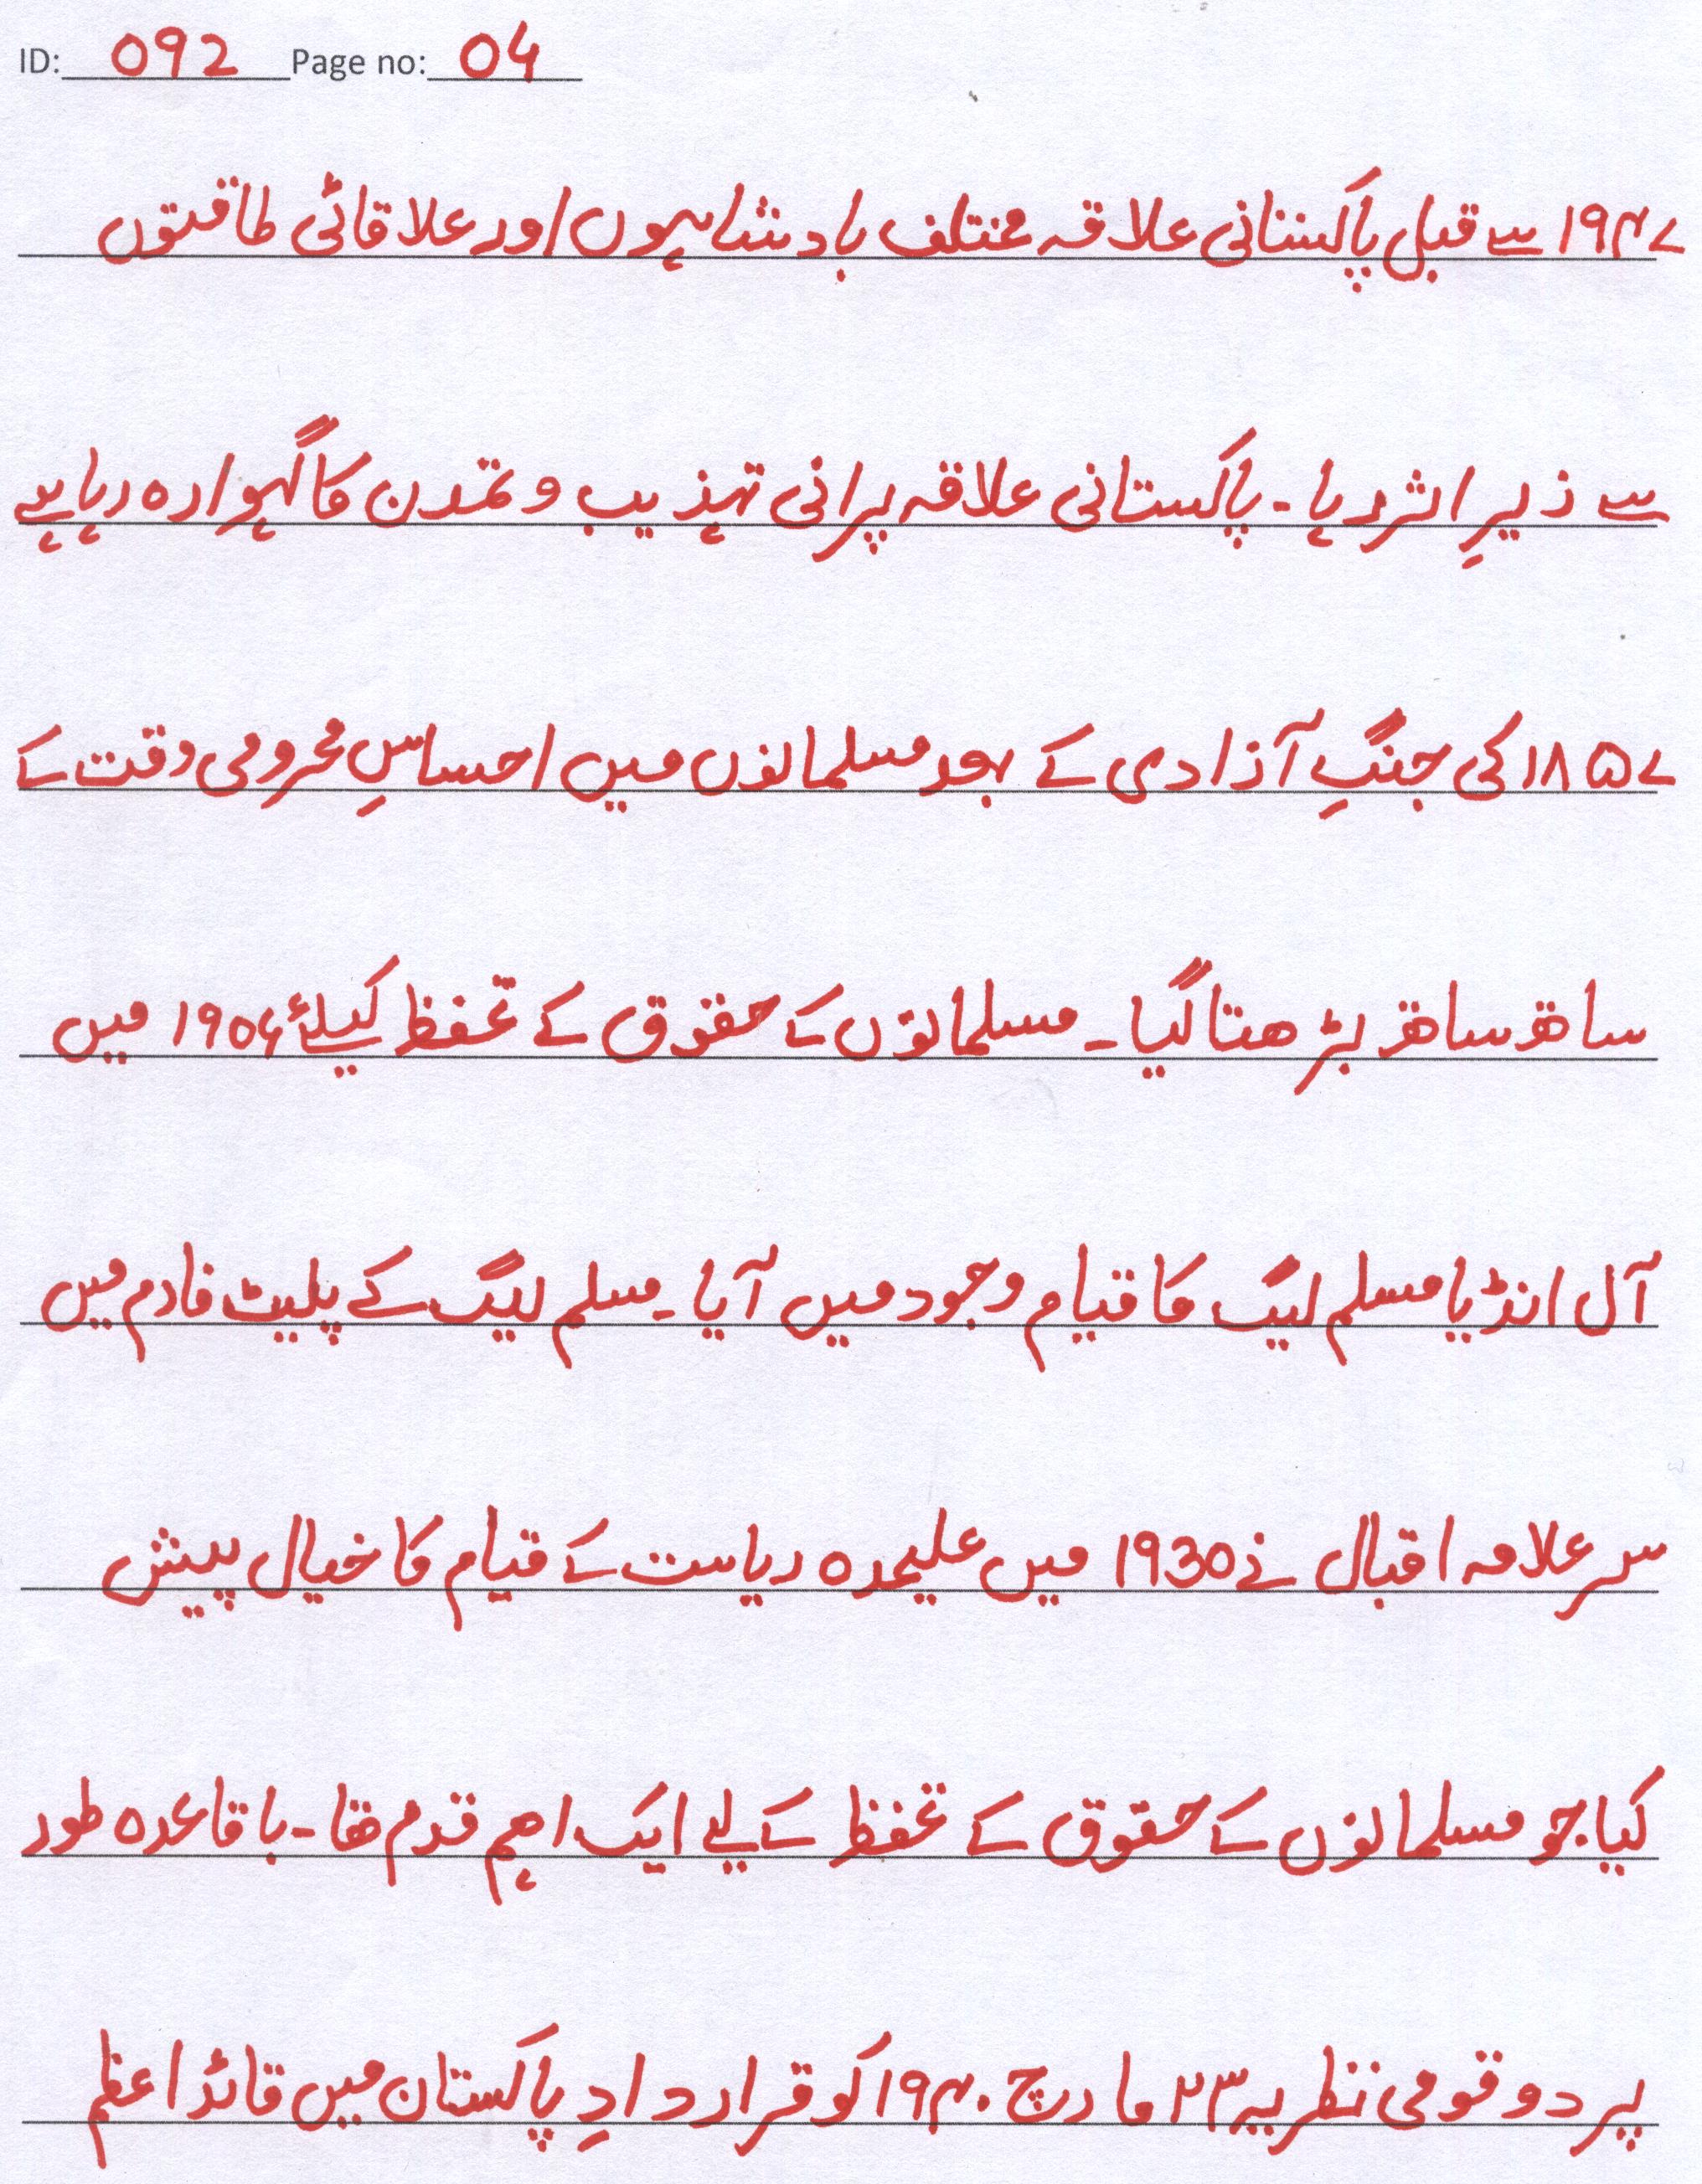 ID: 092 Page no: 04
۱۹۴۷ سے قبل پاکستانی علاقہ مختلف بادشاہوں اور علاقائی طاقتوں
سے زیرِ اثر رہا - پاکستانی علاقہ پرانی تہذیب و تمدن کا گہوارہ رہا ہے
۱۸۵۷ کی جنگِ آزادی کے بعد مسلمانوں میں احساسِ محرومی وقت کے
ساتھ ساتھ بڑھتا گیا - مسلمانوں کے حقوق کے تحفظ کیلئے ۱۹۰۶ میں
آل انڈیا مسلم لیگ کا قیام وجود میں آیا - مسلم لیگ کے پلیٹ فارم میں
سر علامہ اقبال نے 1930 میں علیحدہ ریاست کے قیام کا خیال پیش
کیا جو مسلمانوں کے حقوق کے تحفظ کے لیے ایک اہم قدم تھا - باقاعدہ طور
پر دو قومی نظریہ ۲۳ مارچ ۱۹۴۰ کو قراردادِ پاکستان میں قائد اعظم